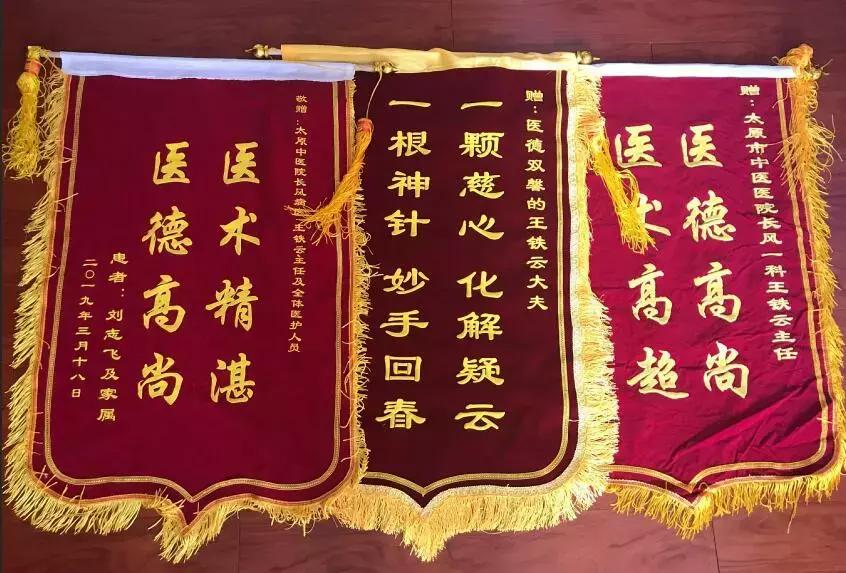 敬赠：太原中医院长风病区王铁云主任及全体医护人员
医术精湛
医德高尚
患者：刘志飞及家属
二〇一九年三月十八日
赠：医德双馨的王铁云大夫
一颗慈心 化解疑云
一根神针 妙手回春
赠：太原市中医医院长风一科王铁云主任
医德高尚
医术高超